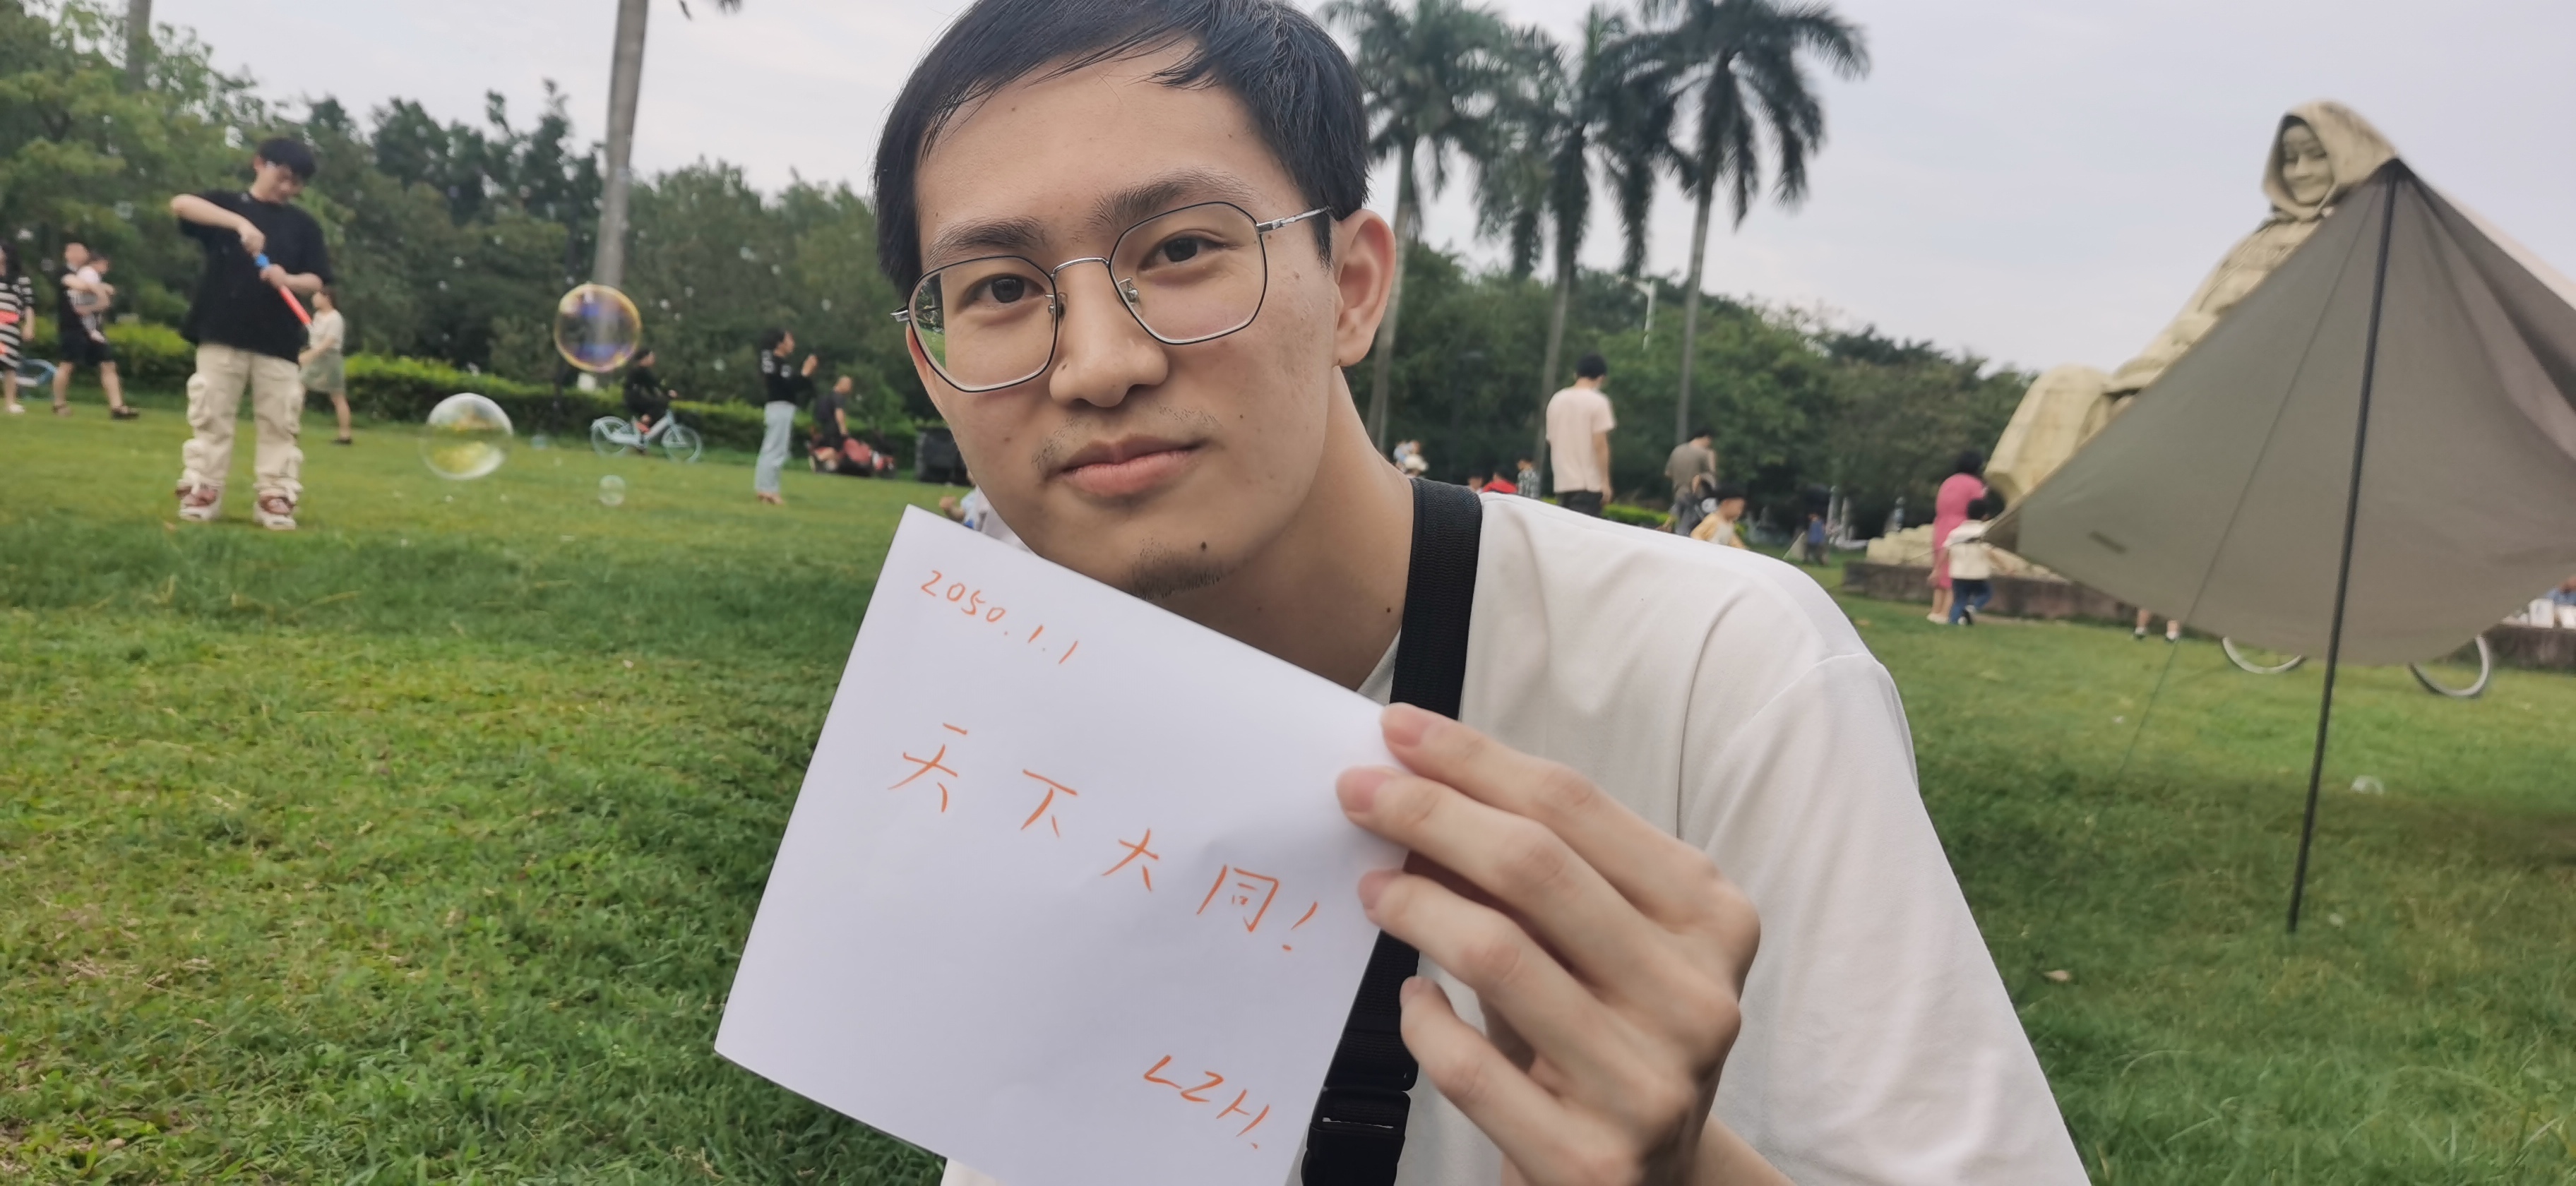 2050.1.1
天下大同!
LZH.